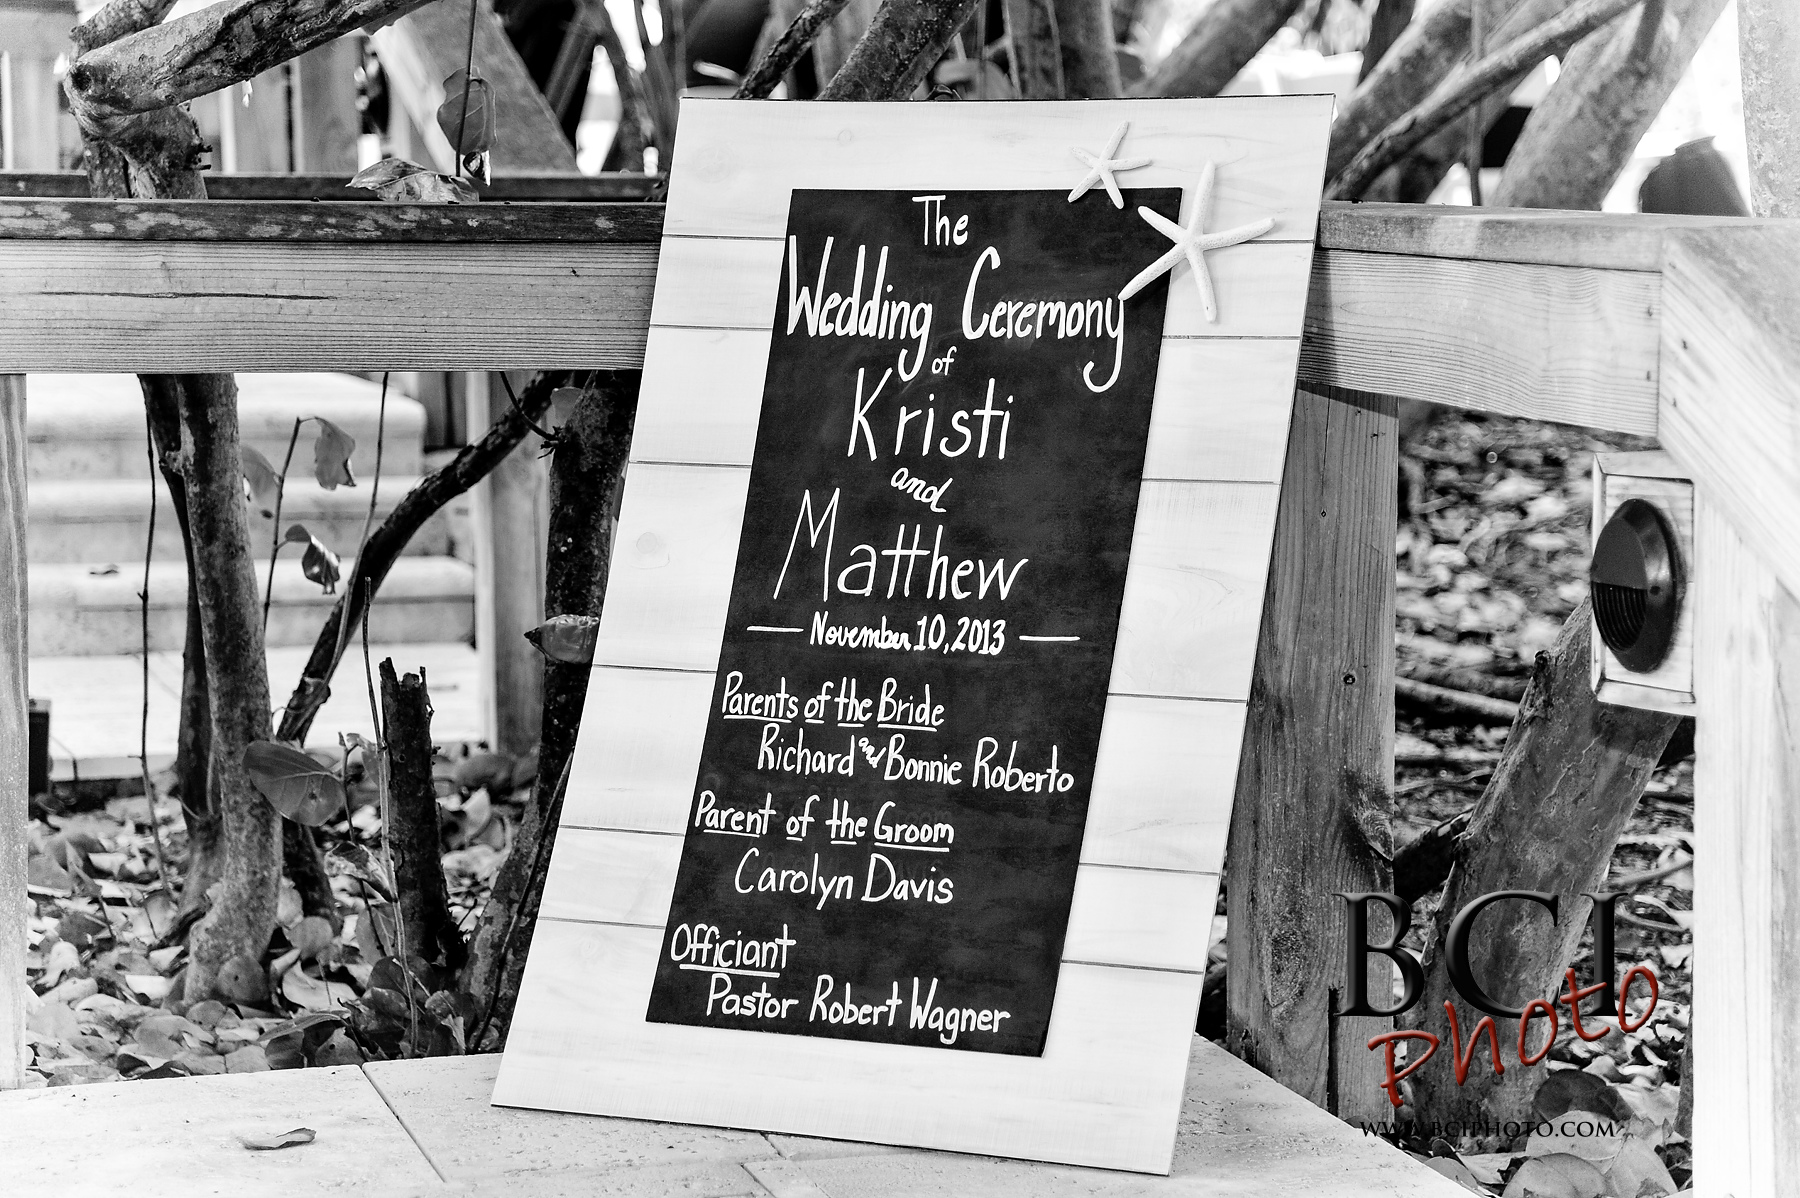 The
Wedding Ceremony
of
Kristi
and
Matthew
November 10, 2013
Parents of the Bride
Richard and Bonnie Roberto
Parent of the Groom
Carolyn Davis
Officiant
Pastor Robert Wagner
BCI
Photo
www.bciphoto.com